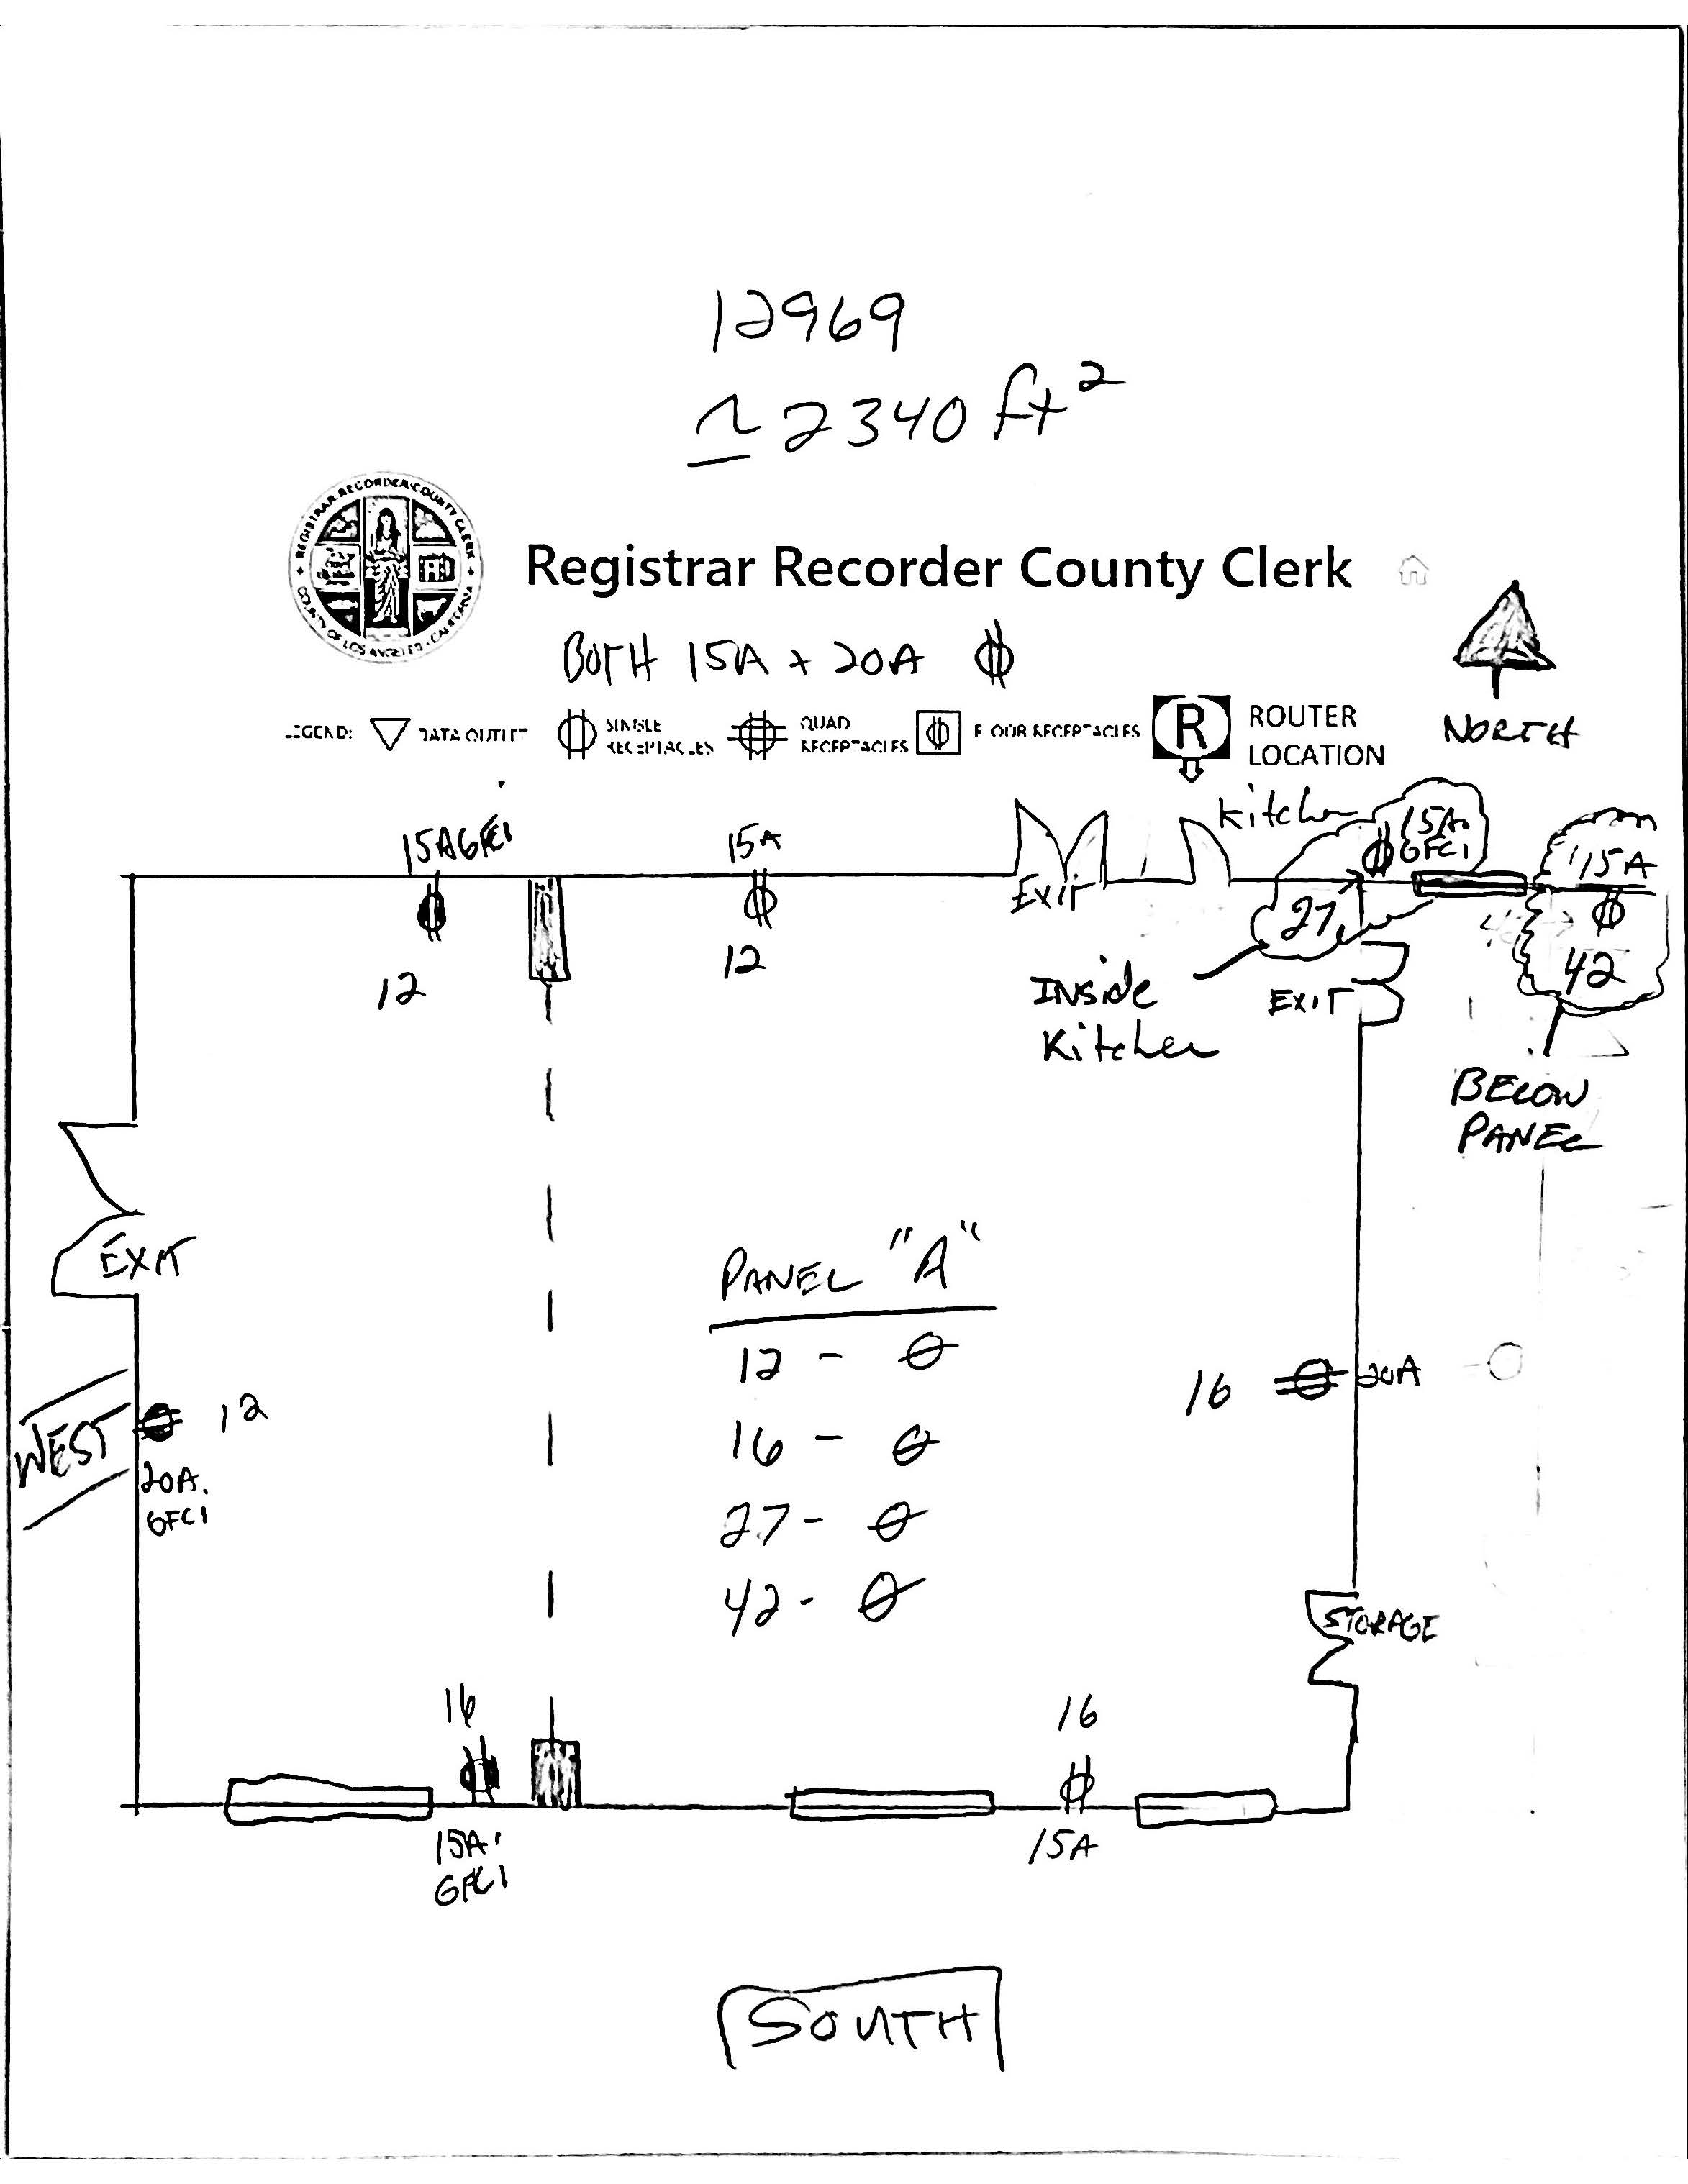 12969
≃ 2340 ft²
REGISTRAR RECORDER COUNTY CLERK
COUNTY OF LOS ANGELES • CALIFORNIA
Registrar Recorder County Clerk
BOTH 15A + 20A
LEGEND: DATA OUTLET SINGLE RECEPTACLES QUAD RECEPTACLES FLOOR RECEPTACLES R ROUTER LOCATION
NORTH
15A GFCI
15A
Kitchen
15A.
GFCI
15A
EXIT
27
12
12
INSide
Kitchen
EXIT
42
BELOW
PANEL
EXIT
PANEL "A"
12 -
16 -
27 -
42 -
16
20A
WEST
12
20A.
GFCI
STORAGE
16
16
15A.
GFCI
15A
SOUTH